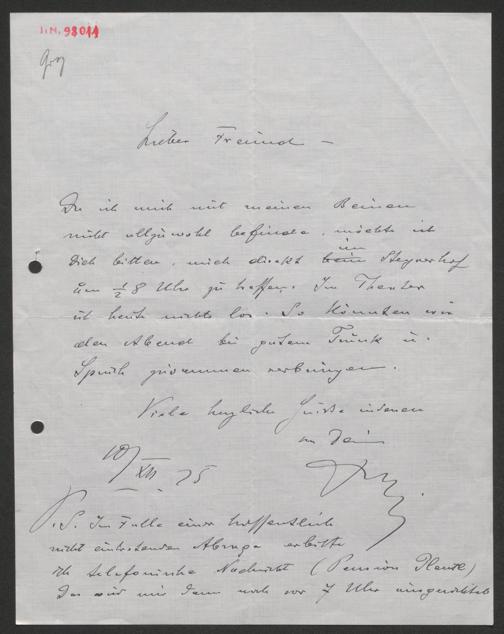 I.N. 98011
Lieber Freund –
Da ich mich mit meinen Beinen
nicht allzuwohl befinde, möchte ich
Dich bitten, mich direkt beim im Steyrerhof
um ½ 8 Uhr zu treffen. Im Theater
ist heute nichts los. So könnten wir
den Abend bei gutem Trunk u.
Spruch zusammen verbringen.
Viele herzliche Grüsse indessen
von Dein
10/XII 25
P.S. Im Falle einer hoffentlich
nicht eintretenden Absage erbitte
ich telefonische Nachricht (Pension
Das wird mir dann noch vor 7 Uhr ausgerichtet